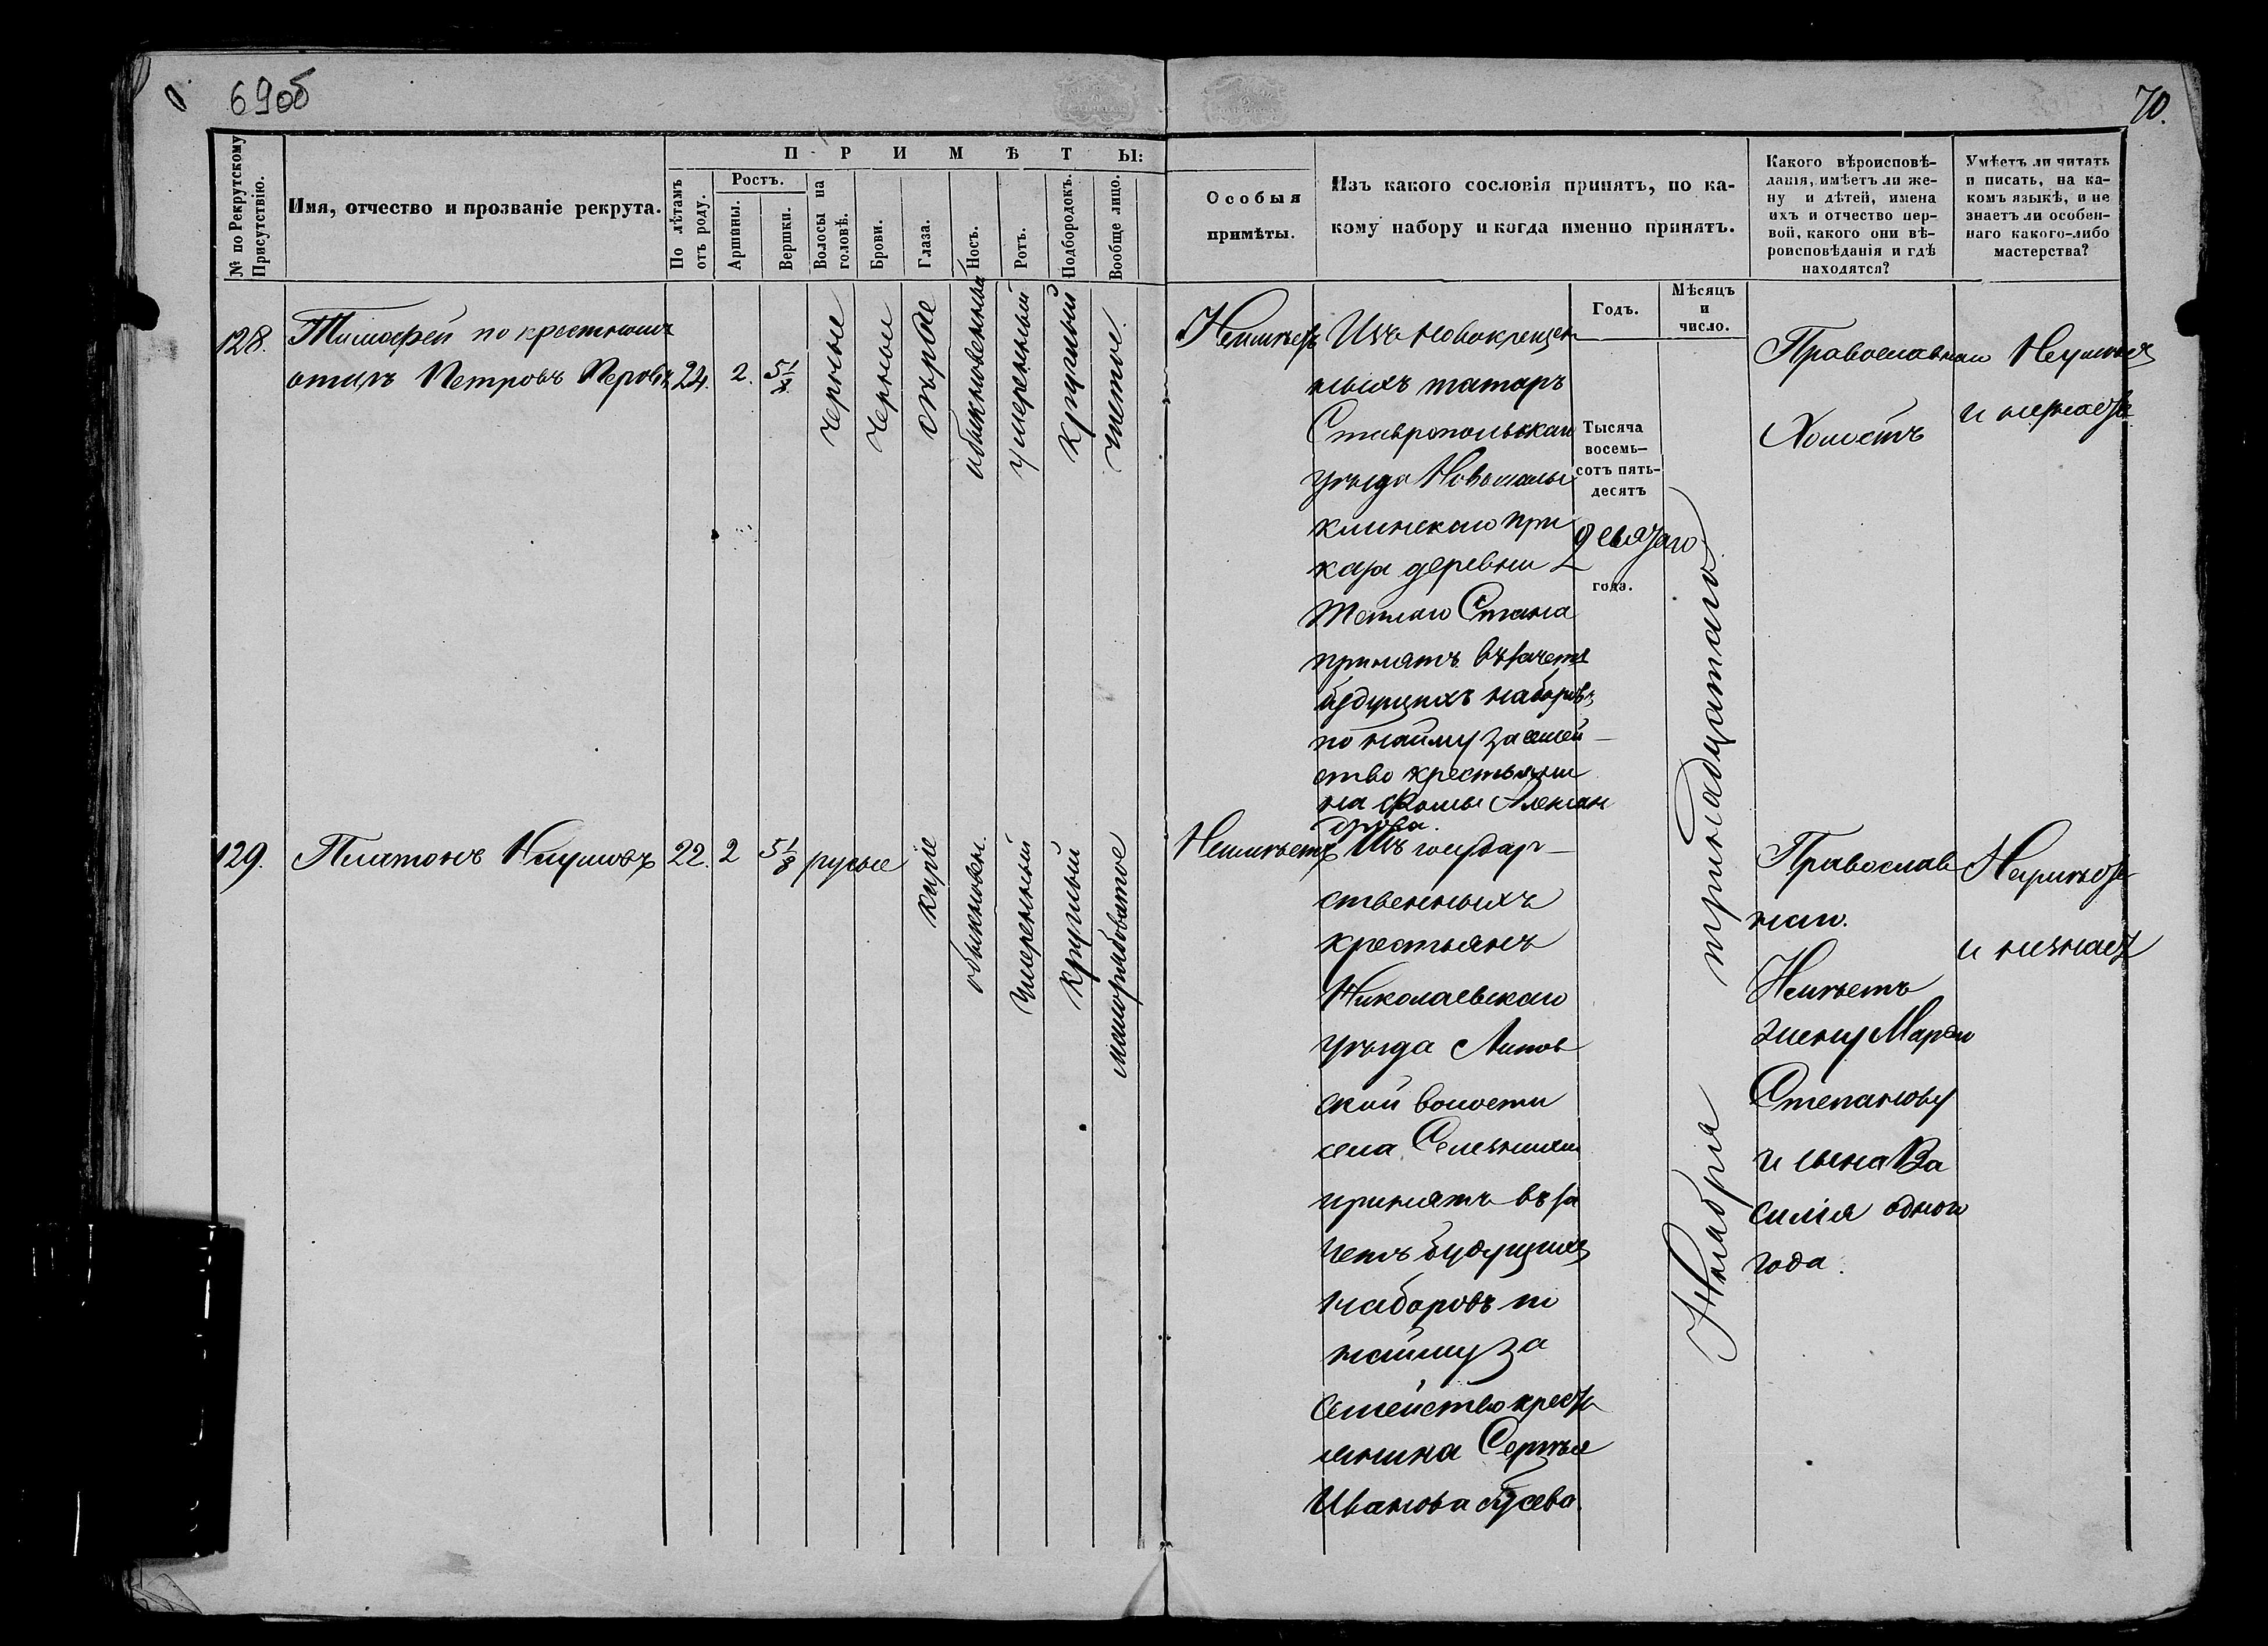 69об
70.
№ по Рекрутскому Присутствію.
Имя, отчество и прозваніе рекрута.
ПРИМѢТЫ:
По лѣтамъ отъ роду.
Ростъ.
Аршины.
Вершки.
Волосы на головѣ.
Брови.
Глаза.
Носъ.
Ротъ.
Подбородокъ.
Вообще лицо.
Особыя
примѣты.
Изъ какого сословія принятъ, по ка-
кому набору и когда именно принятъ.
Годъ.
Мѣсяцъ
и
число.
Какого вѣроисповѣ-
данія, имѣетъ ли же-
ну и дѣтей, имена
ихъ и отчество пер-
вой, какого они вѣ-
роисповѣданія и гдѣ
находятся?
Умѣетъ ли читать
и писать, на ка-
комъ языкѣ, и не
знаетъ ли особен-
наго какого-либо
мастерства?
128.
Тимофей по крестному
отцу Петровъ
24.
2.
5 1/8
черные
черные
сѣрые
обыкновенный
умеренный
круглый
чистое.
Неимѣетъ
Изъ новокрещен
ныхъ татаръ
Ставропольскаго
уѣзда Новомалы
клинскаго при
каза деревни
Теплаго Стана
принятъ въ зачетъ
будущихъ наборовъ
по найму за семей
ство крестьяни
на Фомы Алексан
дрова.
Тысяча
восемь-
сотъ пять-
десятъ
девятаго
года.
Ноября тринадцатаго
Православнаго
Холостъ
Неумѣетъ
и незнаетъ
129.
Платонъ
22.
2
5 1/8
русые
каріе
обыкновен.
умеренный
круглый
малорябоватое
Неимѣетъ
Изъ государ-
ственныхъ
крестьянъ
Николаевскаго
уѣзда Липов
ской волости
села Селезнихи
принятъ въ за
четъ будущихъ
наборовъ по
найму за
семейство кресть
янина Сергѣя
Иванова Гусева.
Православ
наго.
Имѣетъ
жену Марью
Степанову
и сына Ва
силія одного
года.
Неумѣетъ
и незнаетъ